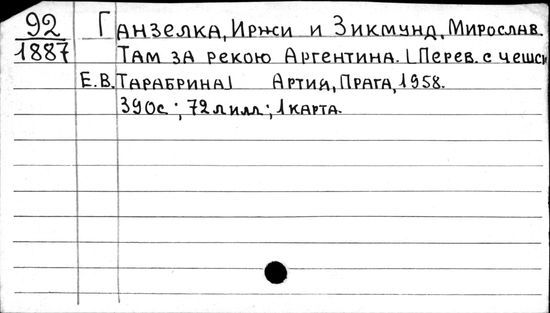 92
1887
Ганзелка, Иржи и Зикмунд, Мирослав.
Там за рекою Аргентина. [Перев. с чешск
Е.В. Тарабрина] Артия, Прага, 1958.
390с; 72л илл; 1 карта.